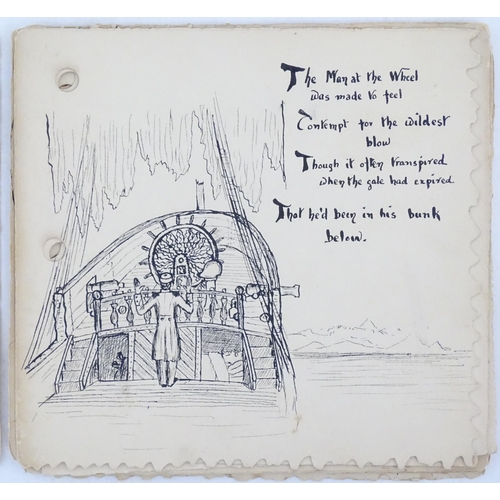 The Man at the Wheel
was made to feel
Contempt for the wildest
blow
Though it often transpired
when the gale had expired
That he'd been in his bunk
below.